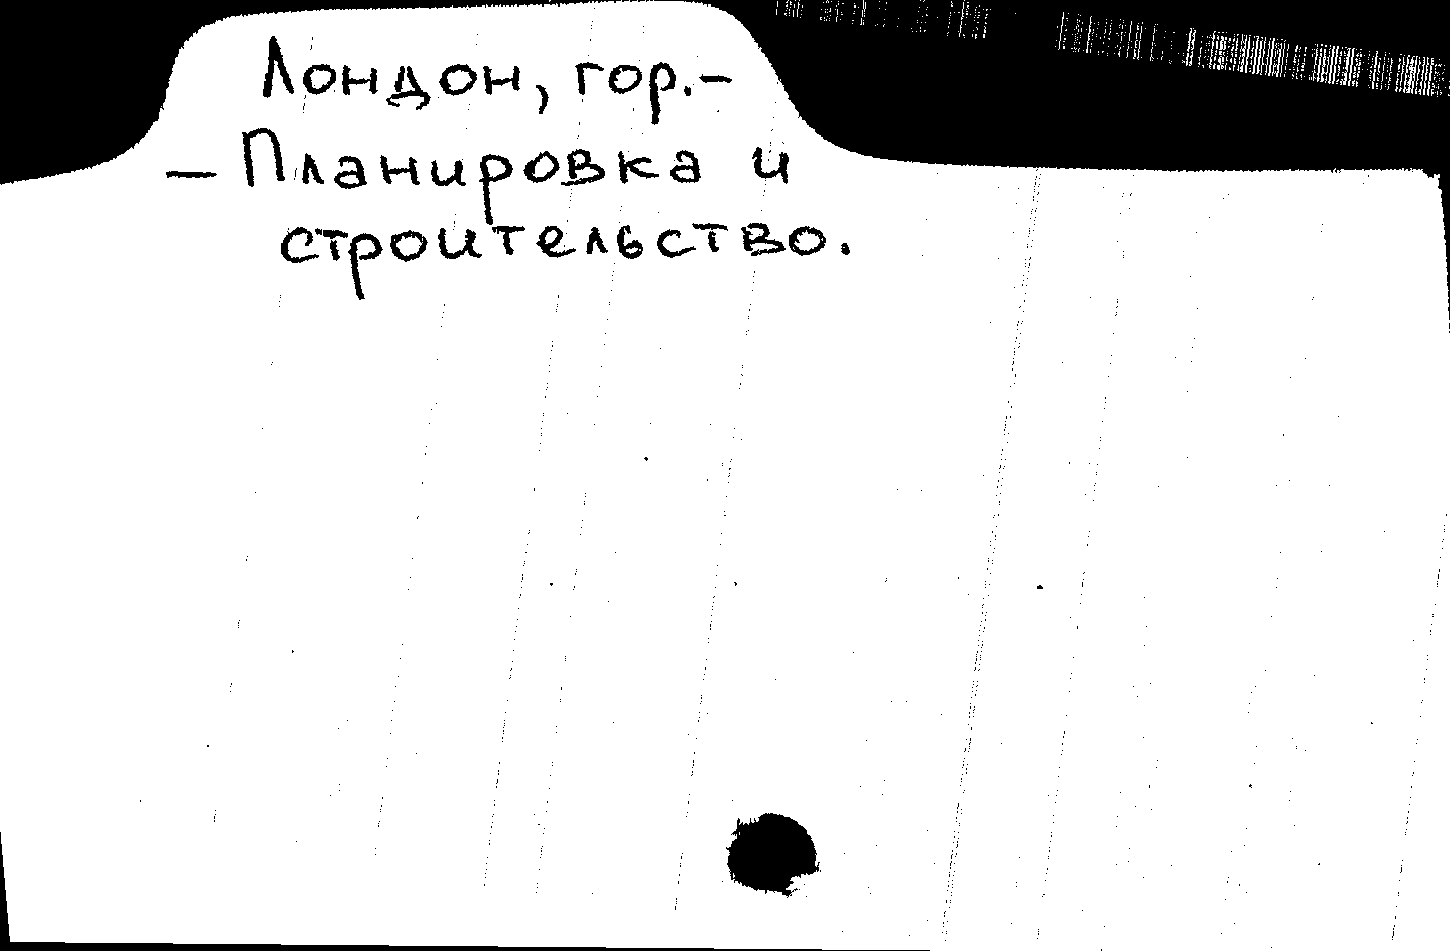 Лондон, гор.-
— Планировка и
строительство.